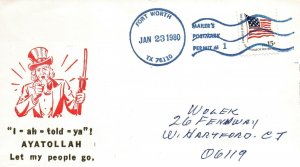 FORT WORTH
JAN 23 1980
TX 76110
MAILER'S
POSTMARK
PERMIT # 1
15c
"I - ah - told - ya"!
AYATOLLAH
Let my people go.
WOLEK
26 FENNWAY
W. HARTFORD - CT
06119